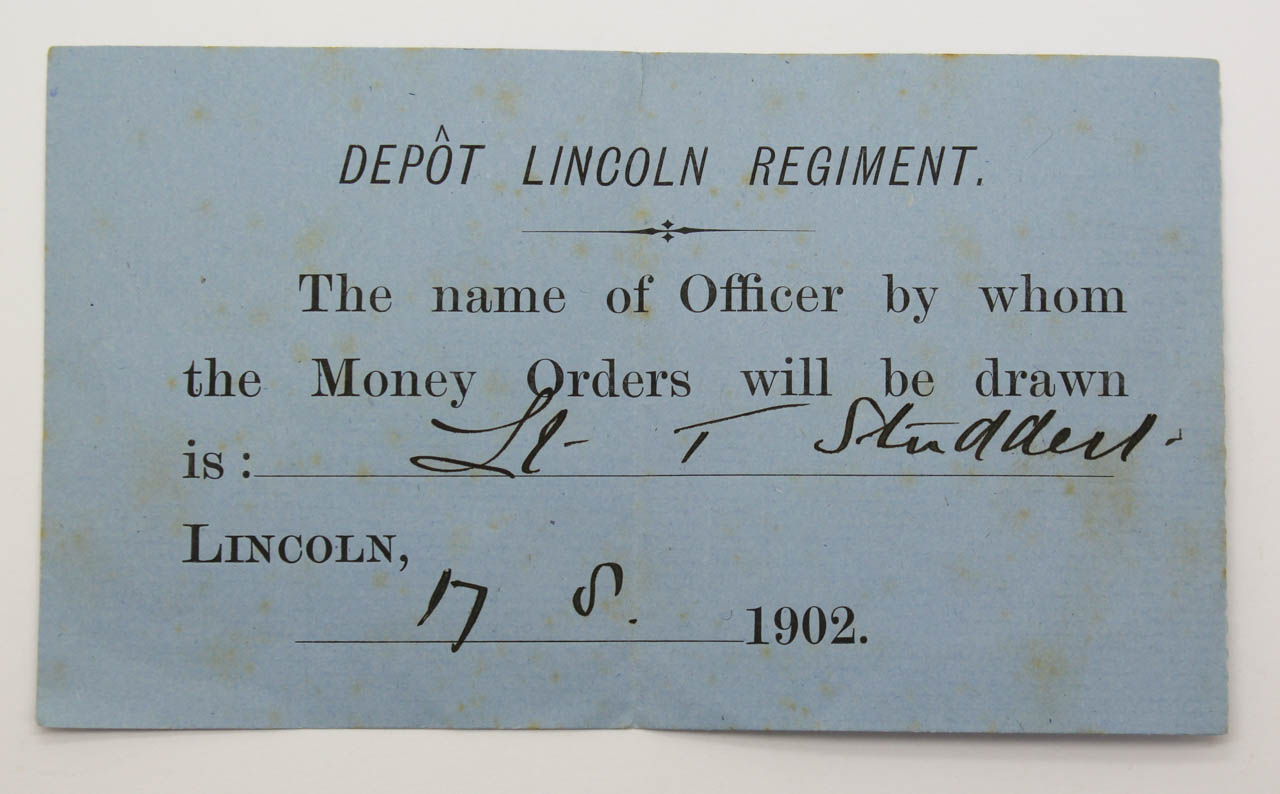 DEPÔT LINCOLN REGIMENT.
The name of Officer by whom
the Money Orders will be drawn
is: Lt T Studdert.
LINCOLN,
17 8. 1902.